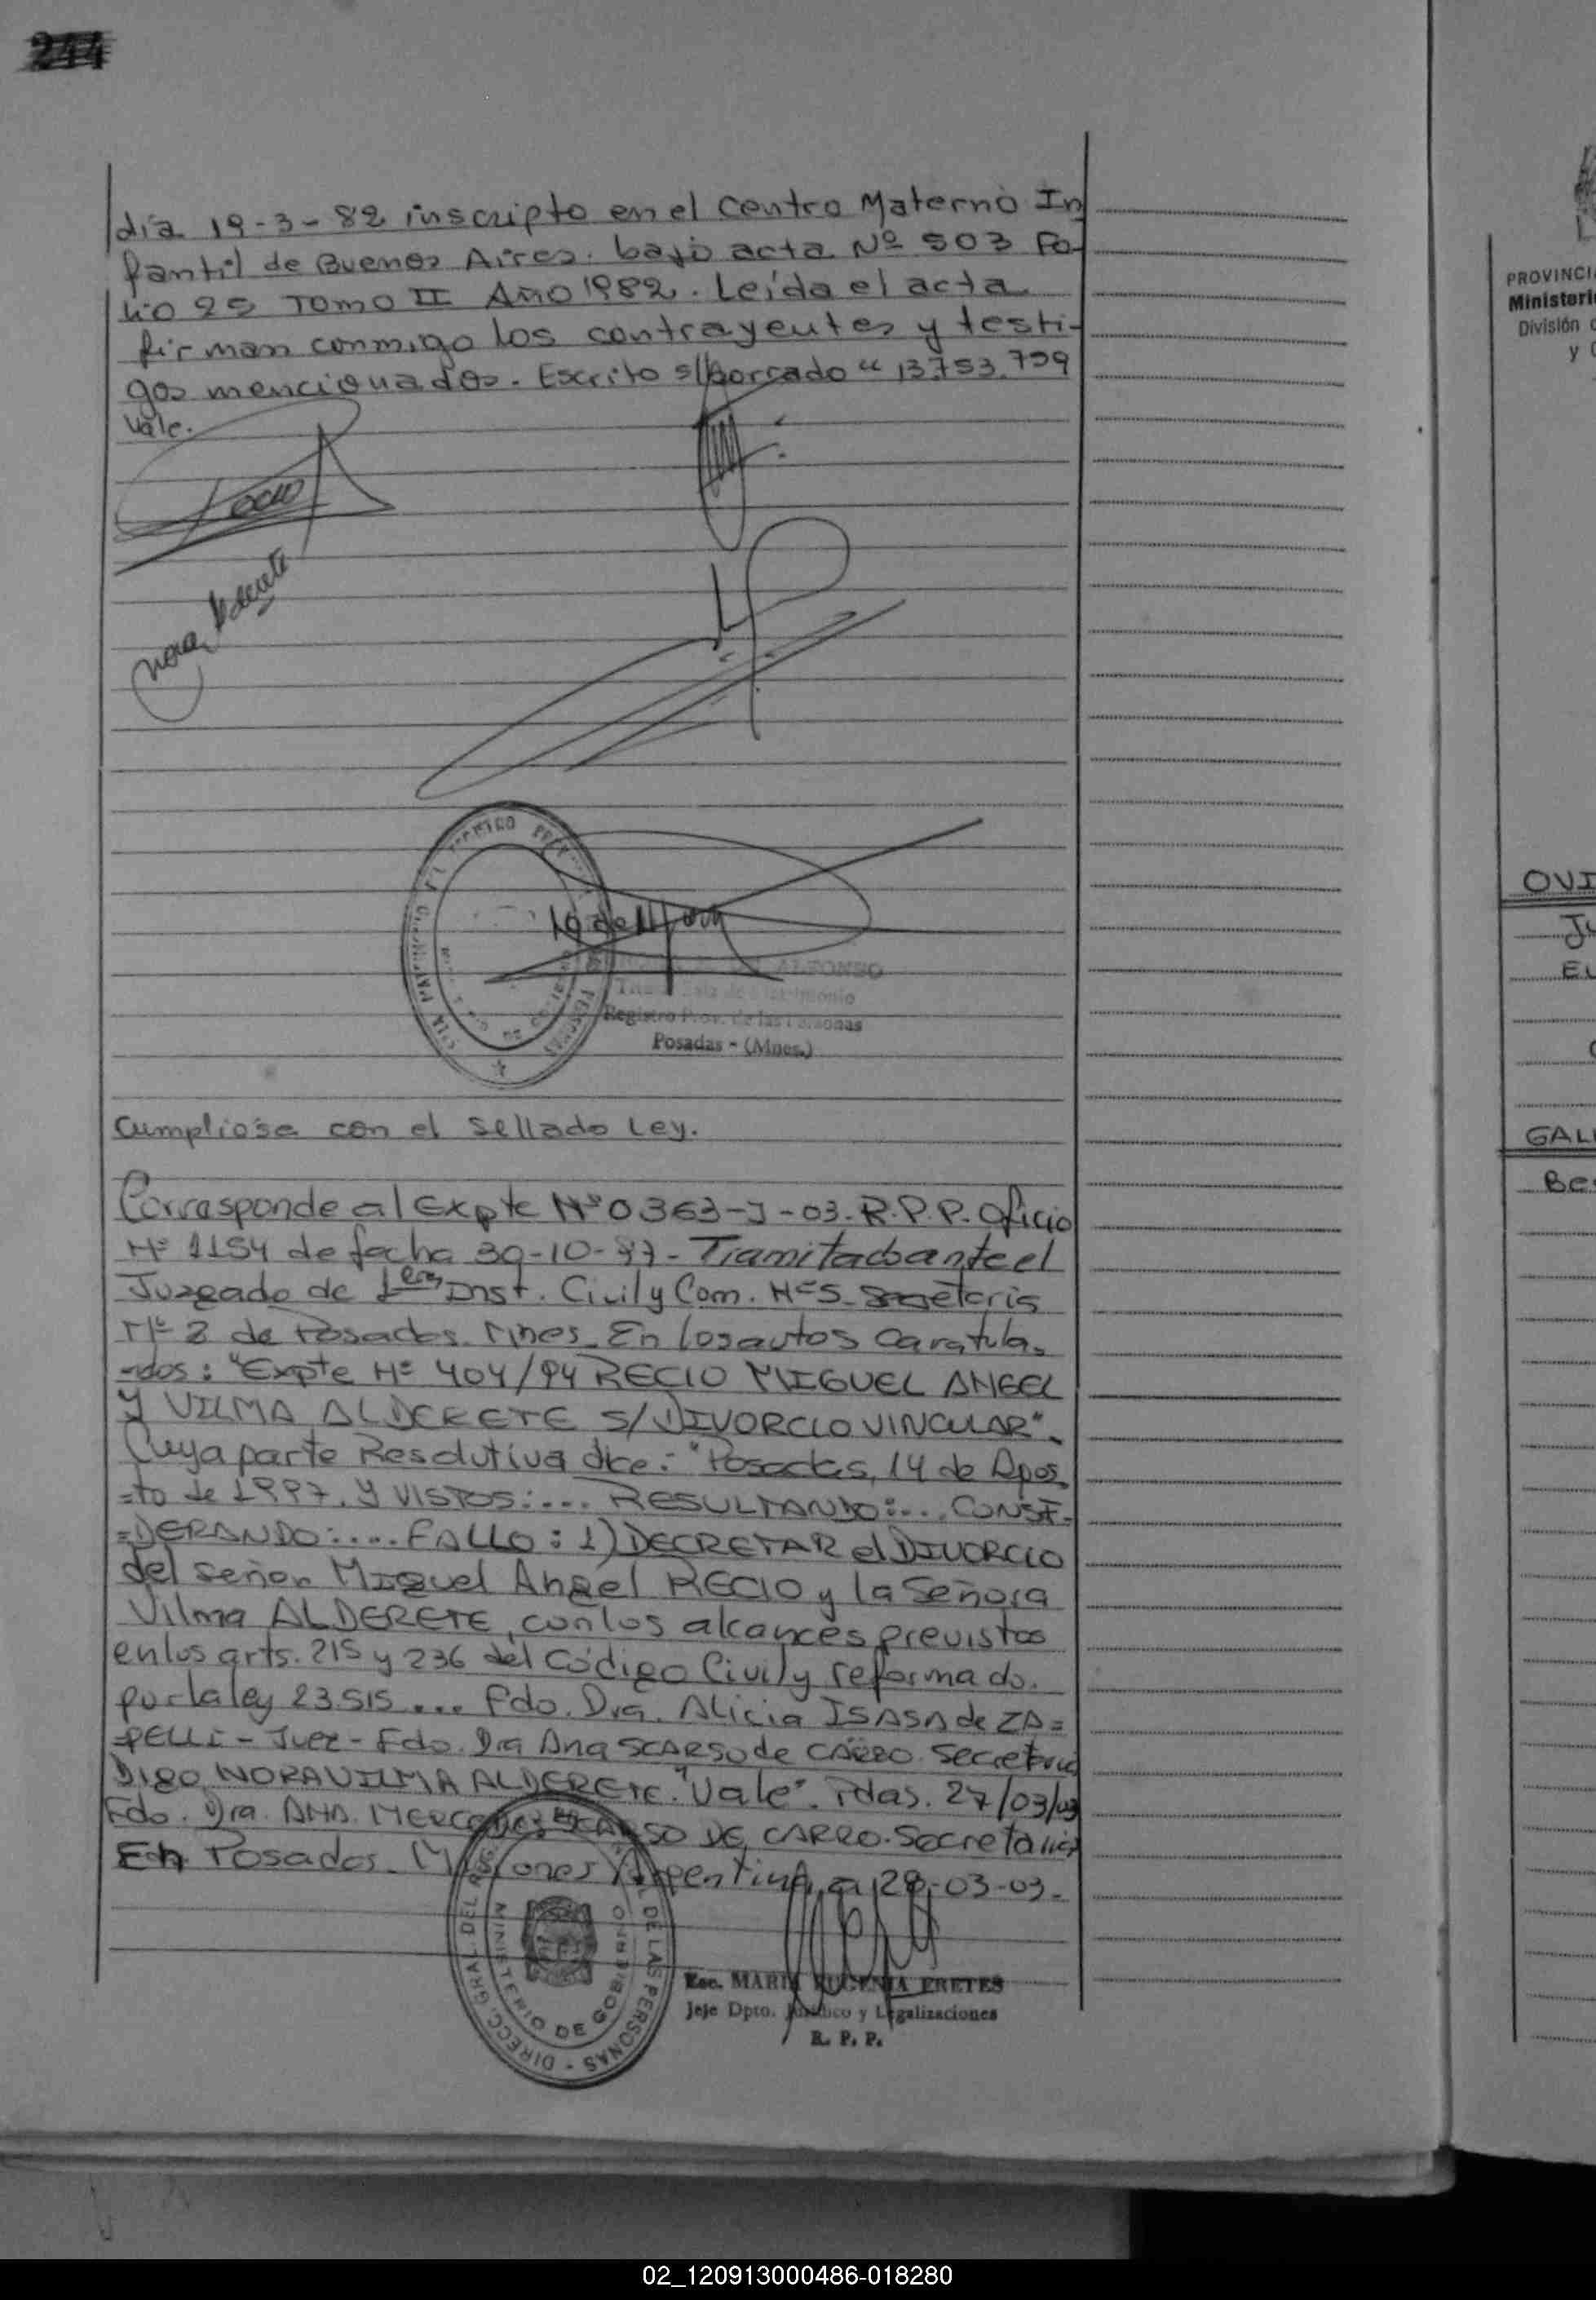 244
día 19-3-82 inscripto en el Centro Materno In
fantil de Buenos Aires. bajo acta Nº 503 Fo-
lio 25 Tomo II Año 1982. Leída el acta
firman conmigo los contrayentes y testi-
gos mencionados. Escrito s/borrado "13.753.799
Vale.
Recio
Nora Alderete
ALFONSO
Registro Prov. de las Personas
Posadas - (Mnes.)
Cumpliose con el sellado Ley.
Corresponde al Expte Nº 0363-J-03. R.P.P. Oficio
Nº 1154 de fecha 30-10-97- Tramitado ante el
Juzgado de 1era Inst. Civil y Com. Nº 5. Secretaria
Nº 2 de Posadas. Mnes. En los autos caratula-
-dos: "Expte Nº 404/94 RECIO MIGUEL ANGEL
Y VILMA ALDERETE S/DIVORCIO VINCULAR".
Cuya parte Resolutiva dice: "Posadas, 14 de Agos
=to de 1997. Y VISTOS:... RESULTANDO:... CONSI-
=DERANDO:.... FALLO: 1) DECRETAR el DIVORCIO
del señor Miguel Angel RECIO y la Señora
Vilma ALDERETE, con los alcances previstos
en los arts. 215 y 236 del Código Civil y reformado.
por la ley 23.515... Fdo. Dra. Alicia ISASA de ZA=
=PELLI - Juez - Fdo. Dra Ana SCARSO de CARRO. Secretaria
Digo NORA VILMA ALDERETE. "Vale". Pdas. 27/03/03
Fdo. Dra. ANA. MERCEDES SCARSO DE CARRO. Secretaria
En Posadas. Misiones Argentina, a 28-03-03.
DIRECC. GRAL DEL REG. DE LAS PERSONAS
MINISTERIO DE GOBIERNO
Esc. MARIA EUGENIA FRETES
Jefe Dpto. Jurídico y Legalizaciones
R. P. P.
PROVINCIA
Ministeri
División
y
OVI
Ju
GAL
Be
02_120913000486-018280